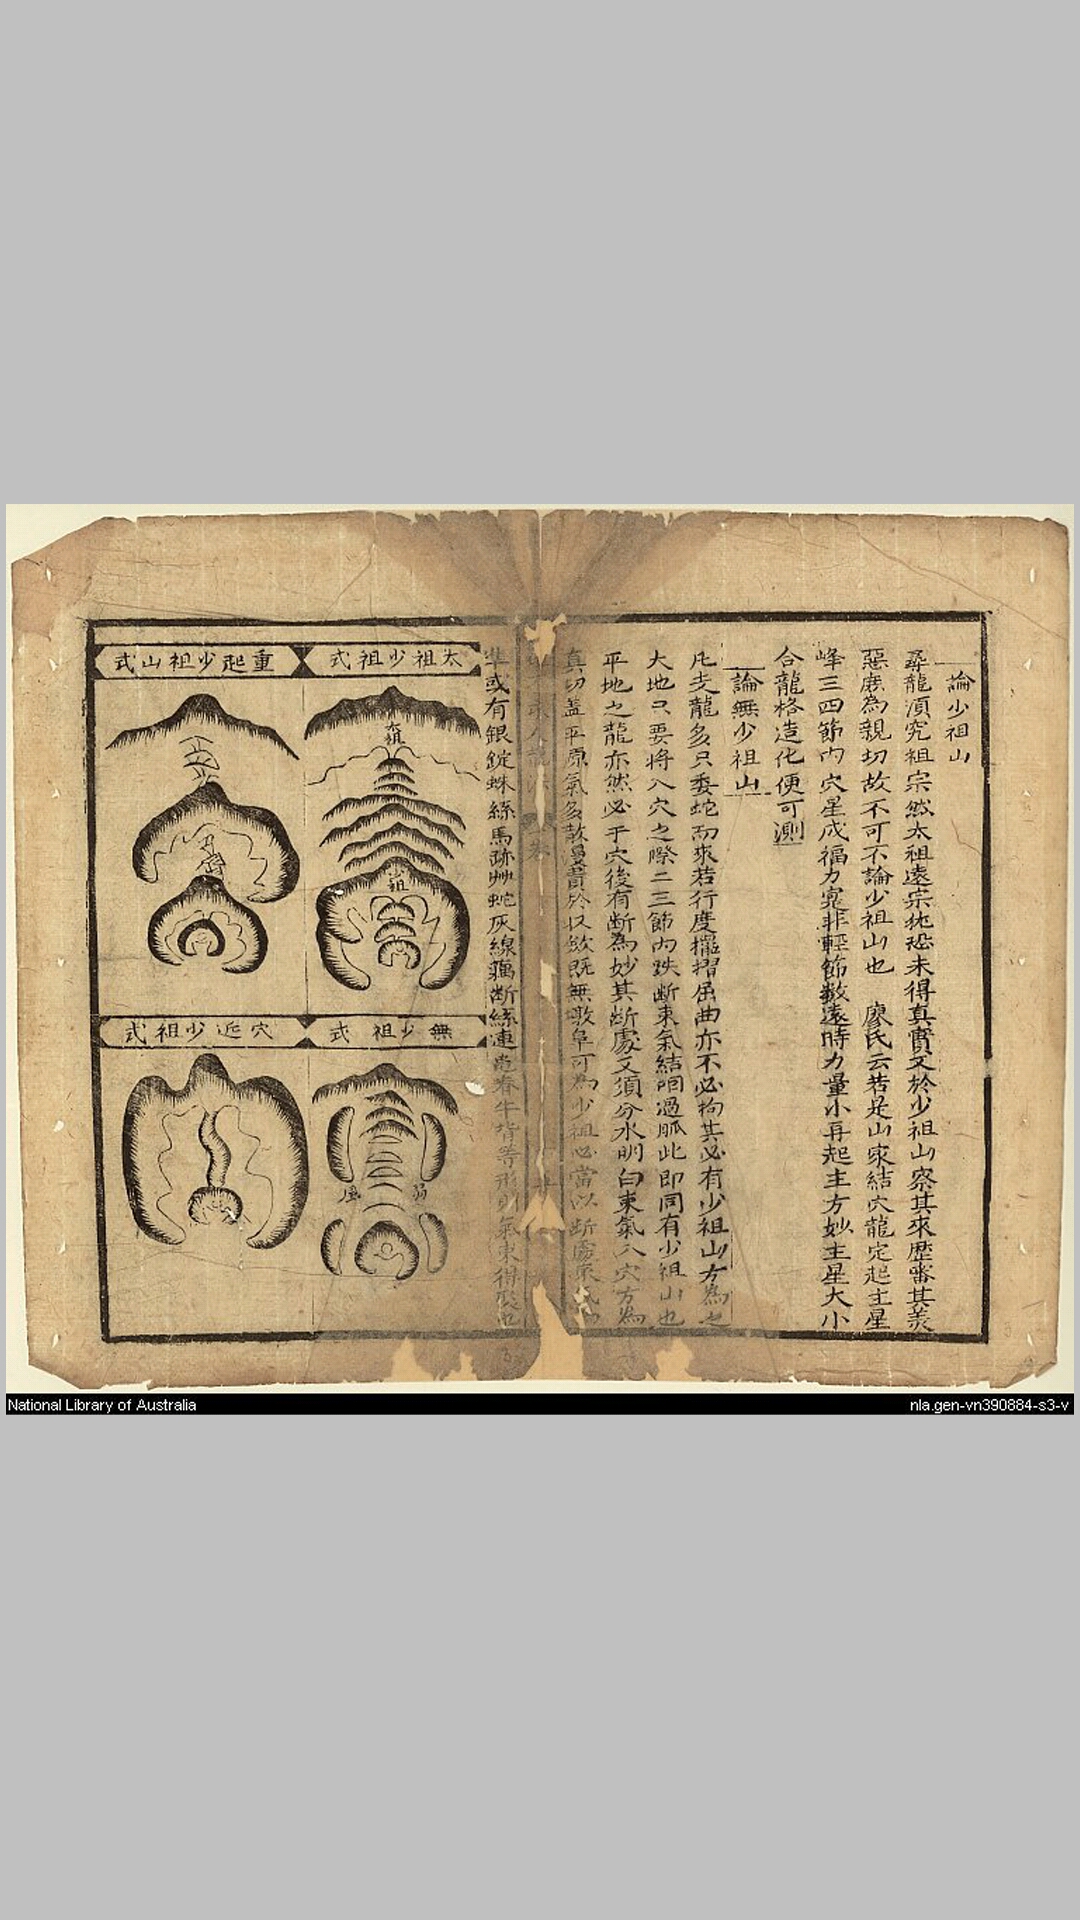 論少祖山
尋龍須究祖宗然太祖遠宗枕恐未得真實又於少祖山察其來歷審其美
惡庶為親切故不可不論少祖山也 廖氏云若是山家結穴龍定起主星
峰三四節內穴星成福力寔非輕節数遠時力量小再起主方妙主星大小
合龍格造化便可測
論無少祖山
凡支龍多只委蛇而來若行度擺摺屈曲亦不必拘其必有少祖山方為也
大地只要将入穴之際二三節內跌断束氣結咽過脈此即同有少祖山也
平地之龍亦然必于穴後有断為妙其断處又須分水明白束氣入穴方為
真切盖平原氣多散漫貴於收斂既無墩阜可為少祖必當以断處束氣為
準或有銀錠蛛絲馬跡艸蛇灰線藕断絲連卷牛背等形則氣束得聚也
太祖少祖式
太祖
少祖
重起少祖山式
無少祖式
穴近少祖式
National Library of Australia
nla.gen-vn390884-s3-v